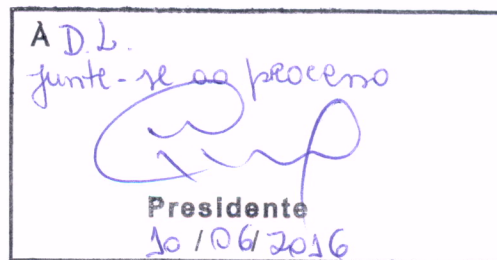 A D.L.
Junte-se ao processo
Presidente
10/06/2016